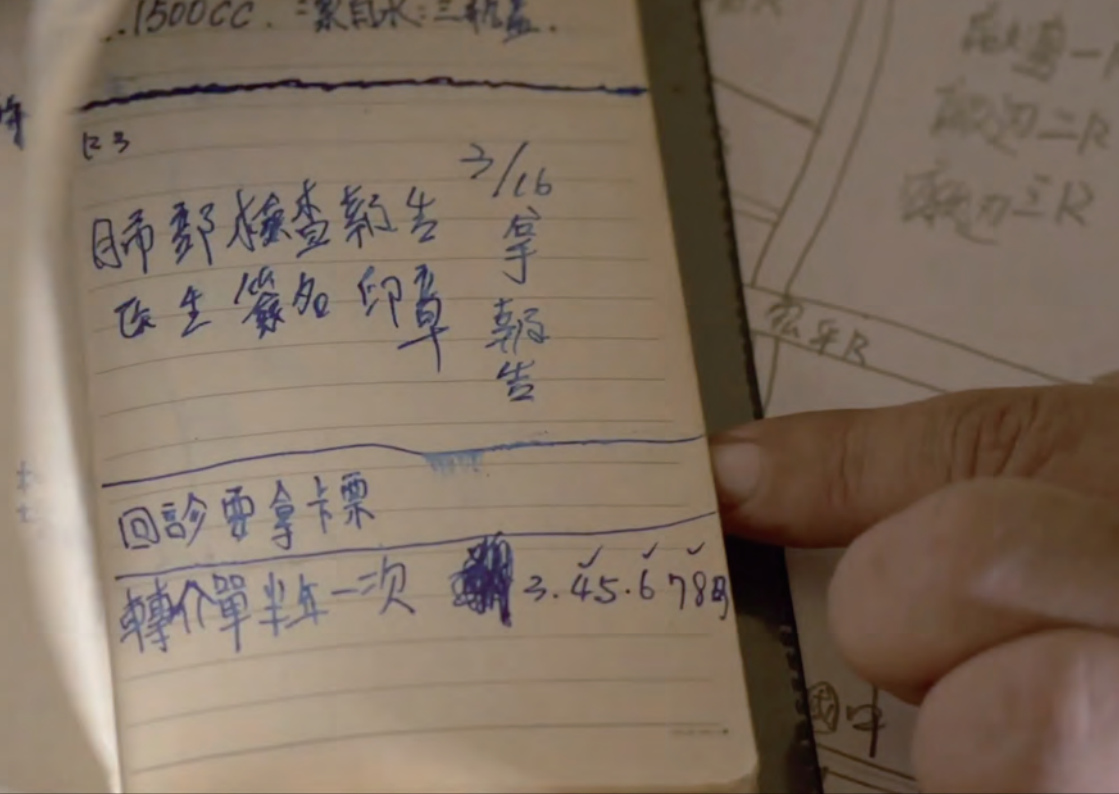 1500CC.
R3
肺部檢查報告
医生簽名 印章
3/16 拿報告
回診要拿卡票
轉介單半年一次 3.45.6 78月
公平R
二R
三R
國中